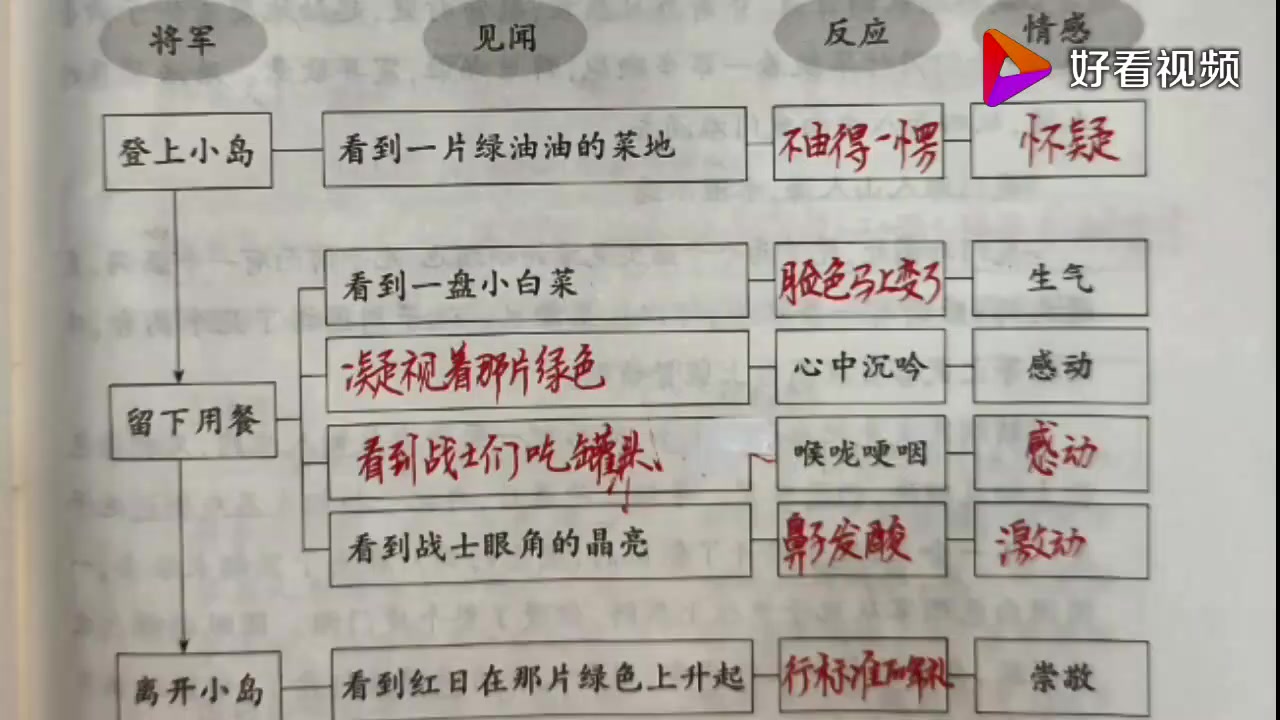 将军 见闻 反应 情感
好看视频
登上小岛 看到一片绿油油的菜地 不由得一愣 怀疑
看到一盘小白菜 脸色马上变了 生气
凝视着那片绿色 心中沉吟 感动
留下用餐
看到战士们吃罐头 喉咙哽咽 感动
看到战士眼角的晶亮 鼻子发酸 激动
离开小岛 看到红日在那片绿色上升起 行标准的军礼 崇敬